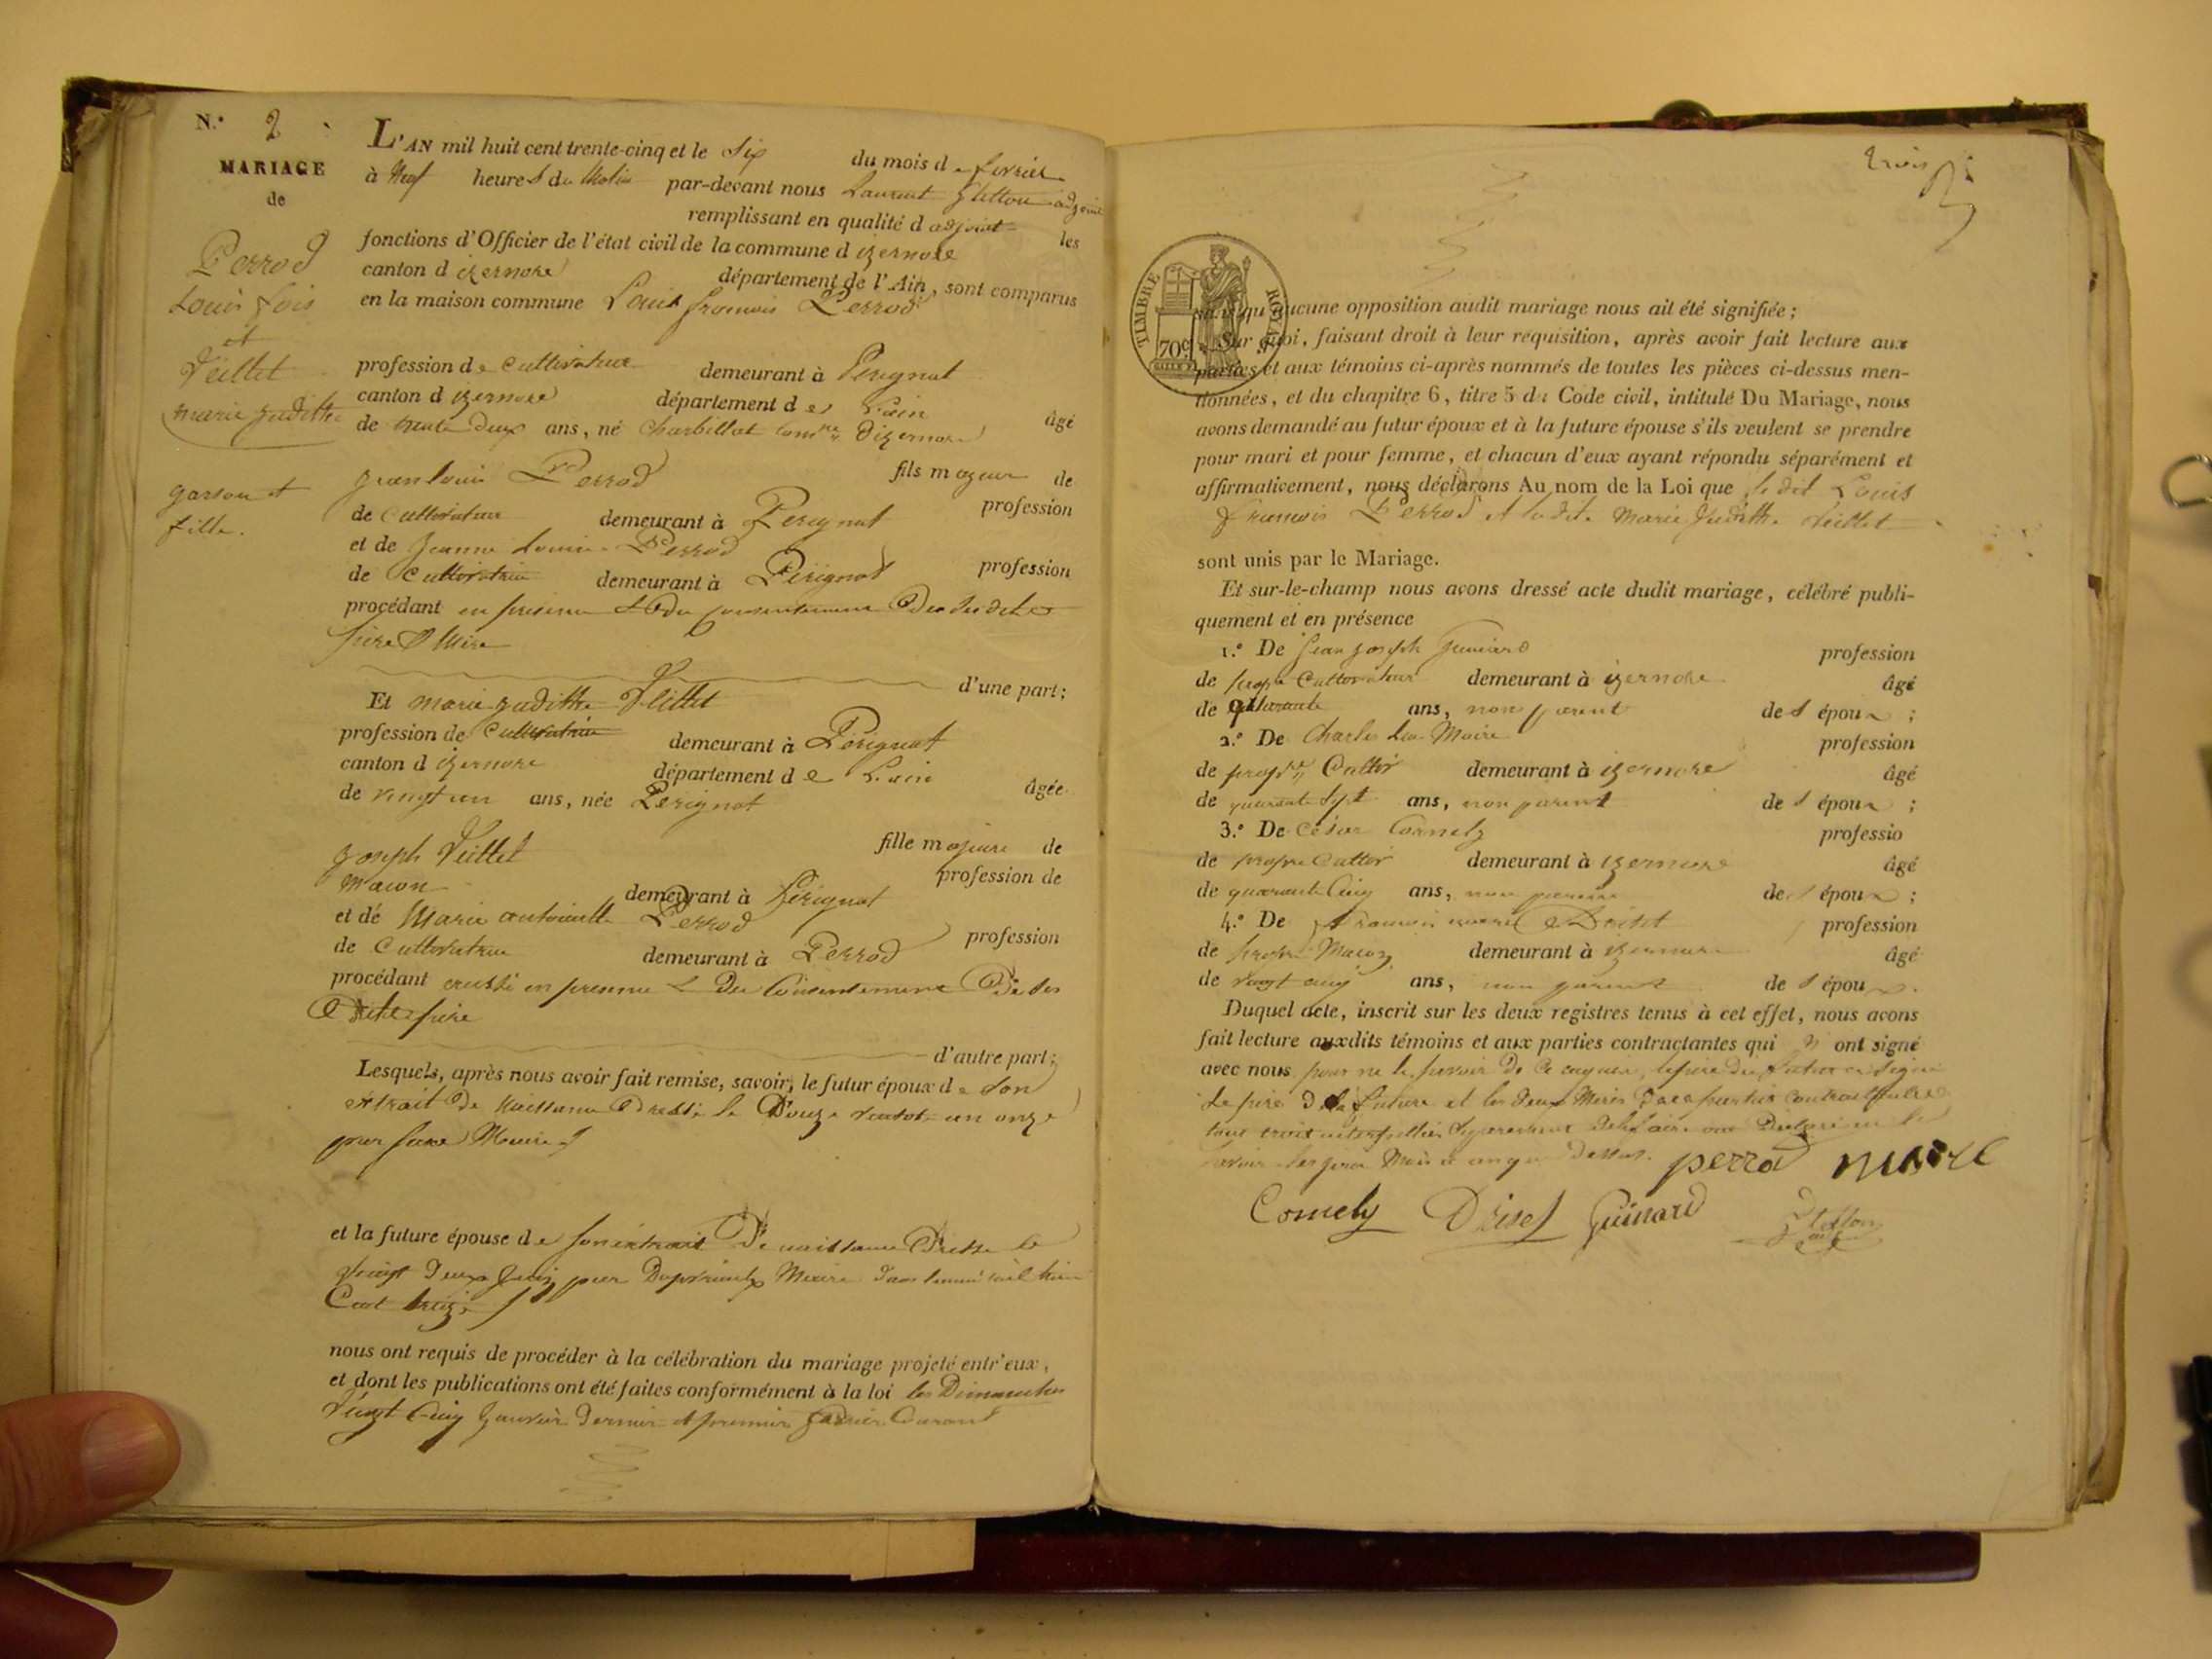 N.° 2
MARIAGE
de
Perrod
Louis fois
et
Veillet
marie judithe
garson et
fille.
L'AN mil huit cent trente-cinq et le Six du mois de fevrier
à Neuf heures du Matin par-devant nous Laurent adjoint
remplissant en qualité d adjoint les
fonctions d'Officier de l'état civil de la commune d izernore
canton d izernore département de l'Ain, sont comparus
en la maison commune Louis francois Perrod
profession de Cultivateur demeurant à Perignat
canton d izernore département de L'ain âgé
de trente deux ans, né Charbillat comne dizernore
jean louis Perrod fils majeur de
de Cultivateur demeurant à Perignat profession
et de Jeanne Louise Perrod
de Cultivatrice demeurant à Perignat profession
procédant en presence et du consentement Des susdits
père & Mère
d'une part;
Et marie judithe Veillet
profession de Cultivatrice demeurant à Pérignat
canton d izernore département de L'ain
de vingt un ans, née Perignat âgée
joseph Veillet fille majeure de
macon demeurant à Pérignat profession de
et de Marie antoinette Perrod
de Cultivatrice demeurant à Perrod profession
procédant aussi en presence et Du Consentement De ses
Dits père
d'autre part;
Lesquels, après nous avoir fait remise, savoir, le futur époux de son
extrait De Naissance Dressé le Douze an onze
par Maire
et la future épouse de son extrait De naissance Dressé le
vingt Deux juin par Maire Dans lannée mil huit
Cent treize
nous ont requis de procéder à la célébration du mariage projeté entr'eux,
et dont les publications ont été faites conformément à la loi les Dimanches
Vingt Cinq Janvier Dernier et premier fevrier Courant
trois
TIMBRE ROYAL
70c
sans qu'aucune opposition audit mariage nous ait été signifiée;
Sur quoi, faisant droit à leur réquisition, après avoir fait lecture aux
parties et aux témoins ci-après nommés de toutes les pièces ci-dessus men-
tionnées, et du chapitre 6, titre 5 du Code civil, intitulé Du Mariage, nous
avons demandé au futur époux et à la future épouse s'ils veulent se prendre
pour mari et pour femme, et chacun d'eux ayant répondu séparément et
affirmativement, nous déclarons Au nom de la Loi que le dit Louis
francois Perrod et la dite Marie Judith Veillet
sont unis par le Mariage.
Et sur-le-champ nous avons dressé acte dudit mariage, célébré publi-
quement et en présence
1.° De Jean joseph profession
de propre Cultivateur demeurant à izernore âgé
de quarante ans, non parent des époux;
2.° De Charles Maire profession
de propre Cultir demeurant à izernore âgé
de quarante Sept ans, non parent des époux;
3.° De César Cornely professio
de propre Cultir demeurant à izernore âgé
de quarante Cinq ans, non parent des époux;
4.° De francois Driset profession
de propre Macon demeurant à izernore âgé
de vingt cinq ans, non parent des époux.
Duquel acte, inscrit sur les deux registres tenus à cet effet, nous avons
fait lecture auxdits témoins et aux parties contractantes qui n ont signé
avec nous pour ne le savoir De ce enquis, le père du futur a signé
Le père De la future et les deux Mères
tous trois De le faire ont Déclaré ne le
savoir les jour Mois et an que Dessus. perrod maire
Cornely Driset Guinard